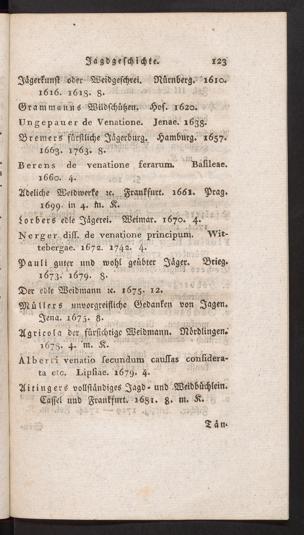 Jagdgeschichte. 123
Jägerkunst oder Weidgeschrei. Nürnberg. 1610.
1616. 1618. 8.
Grammanns Wildschützen. Hof. 1620.
Ungepauer de Venatione. Jenae. 1638.
Bremers fürstliche Jägerburg. Hamburg. 1657.
1663. 1763. 8.
Berens de venatione ferarum. Basileae.
1660. 4.
Adeliche Weidwerke ꝛc. Frankfurt. 1661. Prag.
1699. in 4. m. K.
Lorbers edle Jägerei. Weimar. 1670. 4.
Nerger diss. de venatione principum. Wit-
tebergae. 1672. 1742. 4.
Pauli guter und wohl geübter Jäger. Brieg.
1673. 1679. 8.
Der edle Weidmann ꝛc. 1675. 12.
Müllers unvorgreifliche Gedanken von Jagen.
Jena. 1675. 8.
Agricola der fürsichtige Weidmann. Nördlingen.
1678. 4. m. K.
Alberti venatio secundum caussas considera-
ta etc. Lipsiae. 1679. 4.
Aitingers vollständiges Jagd- und Weidbüchlein.
Cassel und Frankfurt. 1681. 8. m. K.
Tän-